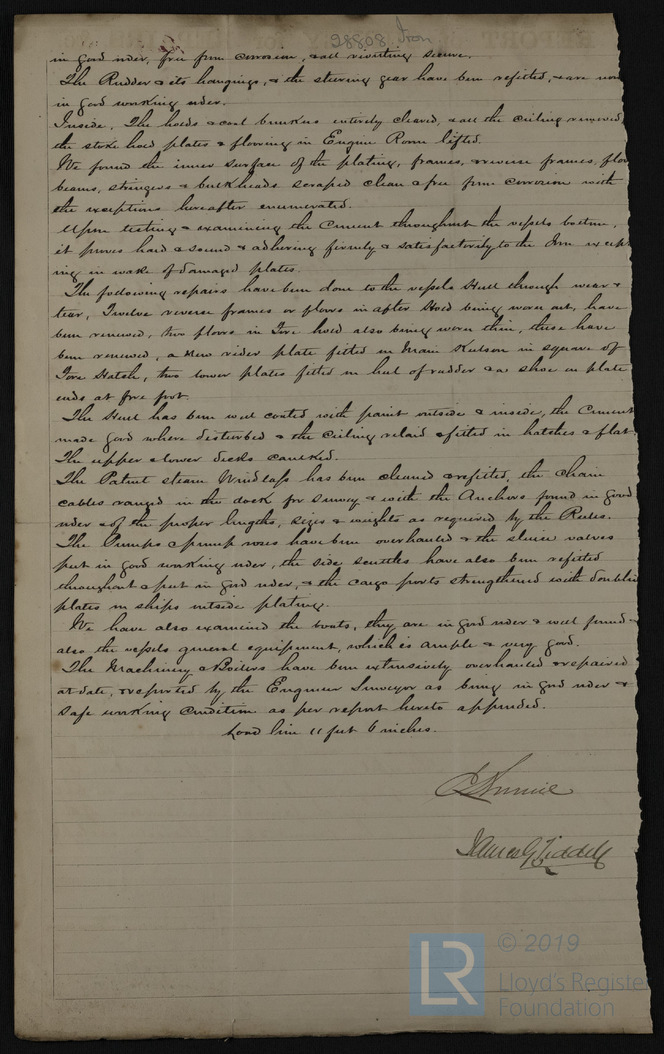 28808 Iron
in good order, free from corrosion, & all riveting secure.
The Rudder & its hangings, & the steering gear have been refitted, & are now
in good working order.
Inside, The holds & coal bunkers entirely cleared, & all the ceiling removed
the stoke hold plates & flooring in Engine Room lifted.
We found the inner surface of the plating, frames, & reverse frames, floo
beams, stringers & bulkheads scraped clean & free from corrosion with
the exceptions hereafter enumerated.
Upon testing & examining the Cement throughout the vessels bottom,
it proves hard & sound & adhering firmly & satisfactorily to the Iron except
ing in wake of damaged plates.
The following repairs have been done to the vessels Hull through wear &
tear, Twelve reverse frames on floors in after Hold being worn out, have
been renewed, two floors in Fore hold also being worn thin, these have
been renewed, a new rider plate fitted on Main Keelson in square of
Fore Hatch, two lower plates fitted in heel of rudder & a shoe on plate
ends at fore foot.
The Hull has been well coated with paint outside & inside, the Cement
made good where disturbed & the Ceiling relaid & fitted in hatches & flat.
The upper & lower decks caulked.
The Patent steam Windlass has been cleaned & refitted, the chain
cables ranged in the dock for survey & with the Anchors found in good
order & of the proper lengths, sizes & weights as required by the Rules.
The Pumps & pump roses have been overhauled & the sluice valves
put in good working order, the side scuttles have also been refitted
throughout & put in good order, & the cargo ports strengthened with doublin
plates on ships outside plating.
We have also examined the boats, they are in good order & well found &
also the vessels general equipment, which is ample & very good.
The Machinery & Boilers have been extensively overhauled & repaired
at date, & reported by the Engineer Surveyor as being in good order &
safe working condition as per report hereto appended.
Load line 11 feet 6 inches.
James G Liddell
LR © 2019
Lloyd's Register
Foundation